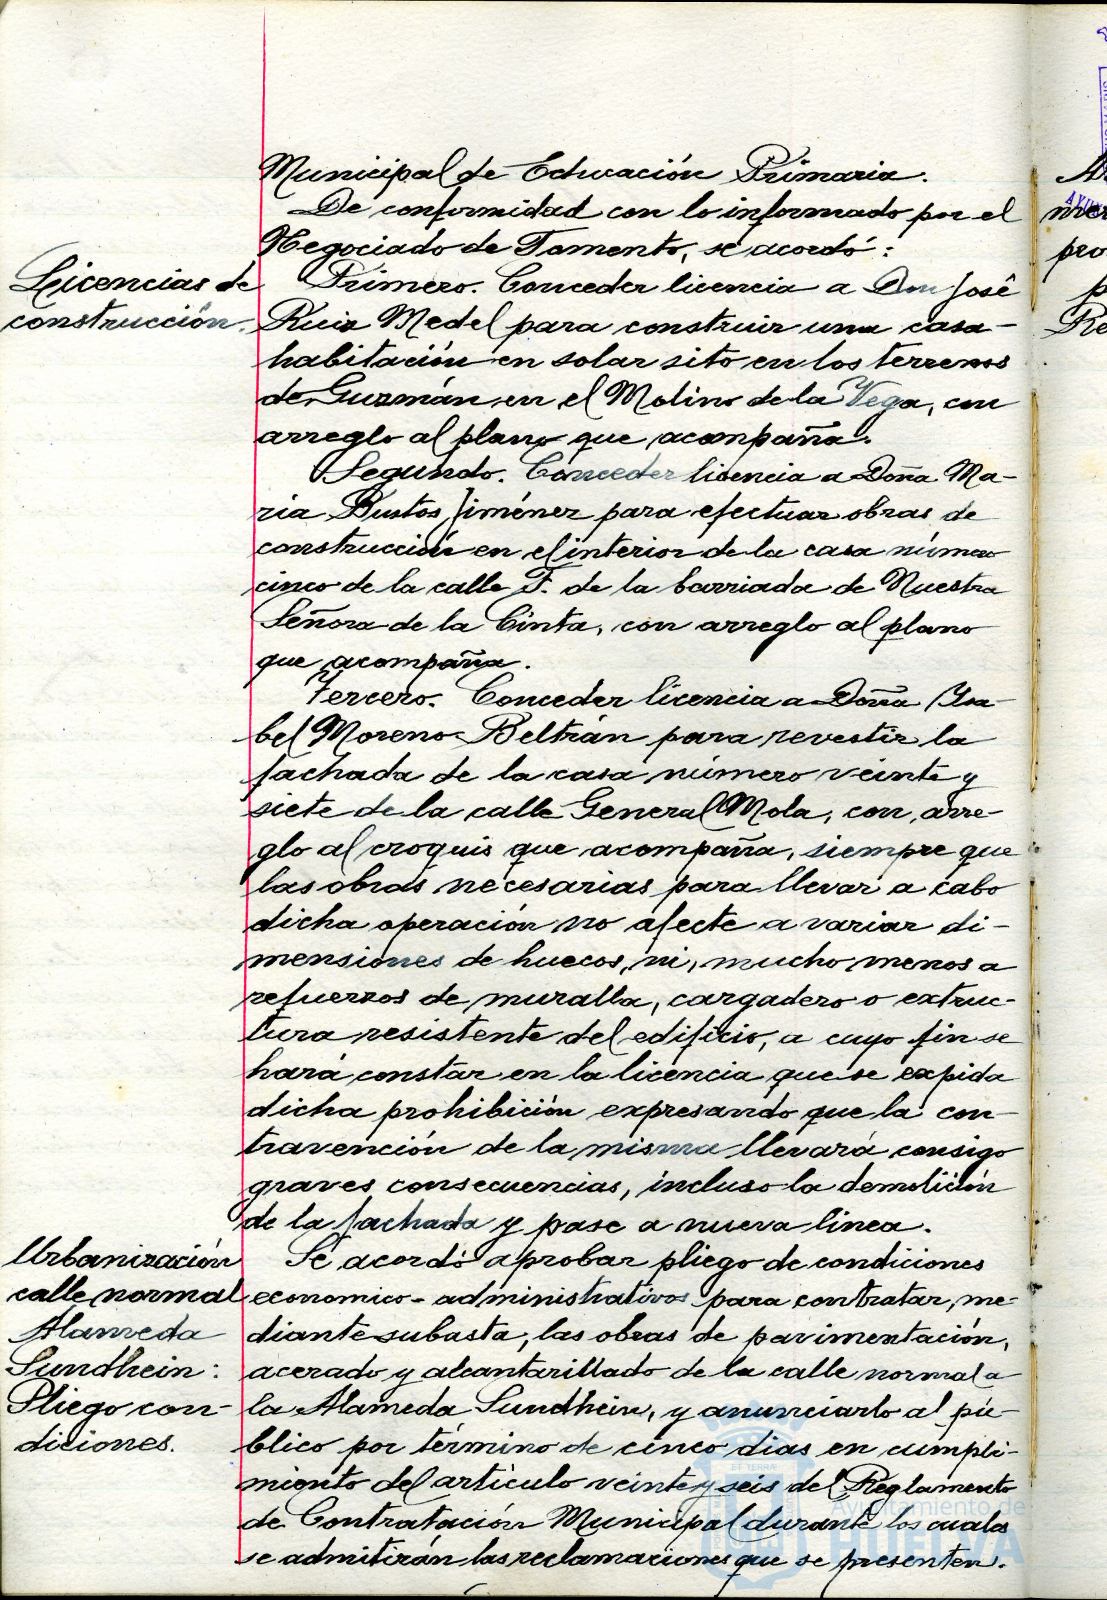 Municipal de Educación Primaria.
De conformidad con lo informado por el
Negociado de Fomento, se acordó:
Licencias de
construcción.
Primero. Conceder licencia a Don José
Ruiz Medel para construir una casa-
habitación en solar sito en los terrenos
de Guzmán en el Molino de la Vega, con
arreglo al plano que acompaña.
Segundo. Conceder licencia a Doña Ma-
ria Bustos Jiménez para efectuar obras de
construcción en el interior de la casa número
cinco de la calle F. de la barriada de Nuestra
Señora de la Cinta, con arreglo al plano
que acompaña.
Tercero. Conceder licencia a Doña Isa-
bel Moreno Beltrán para revestir la
fachada de la casa número veinte y
siete de la calle General Mola, con arre-
glo al croquis que acompaña, siempre que
las obras necesarias para llevar a cabo
dicha operación no afecte a variar di-
mensiones de huecos, ni, mucho menos a
refuerzos de muralla, cargadero o extruc-
tura resistente del edificio, a cuyo fin se
hará constar en la licencia que se expida
dicha prohibición expresando que la con-
travención de la misma llevará consigo
graves consecuencias, incluso la demolición
de la fachada y pase a nueva linea.
Urbanización
calle normal
Alameda
Sundhein:
Pliego con-
diciones.
Se acordó aprobar pliego de condiciones
economico-administrativos para contratar, me-
diante subasta, las obras de pavimentación,
acerado y alcantarillado de la calle normal a
la Alameda Sundhein, y anunciarlo al pú-
blico por término de cinco dias en cumpli-
miento del articulo veinte y seis del Reglamento
de Contratación Municipal durante los cuales
se admitirán las reclamaciones que se presenten.
Ayuntamiento de
HUELVA